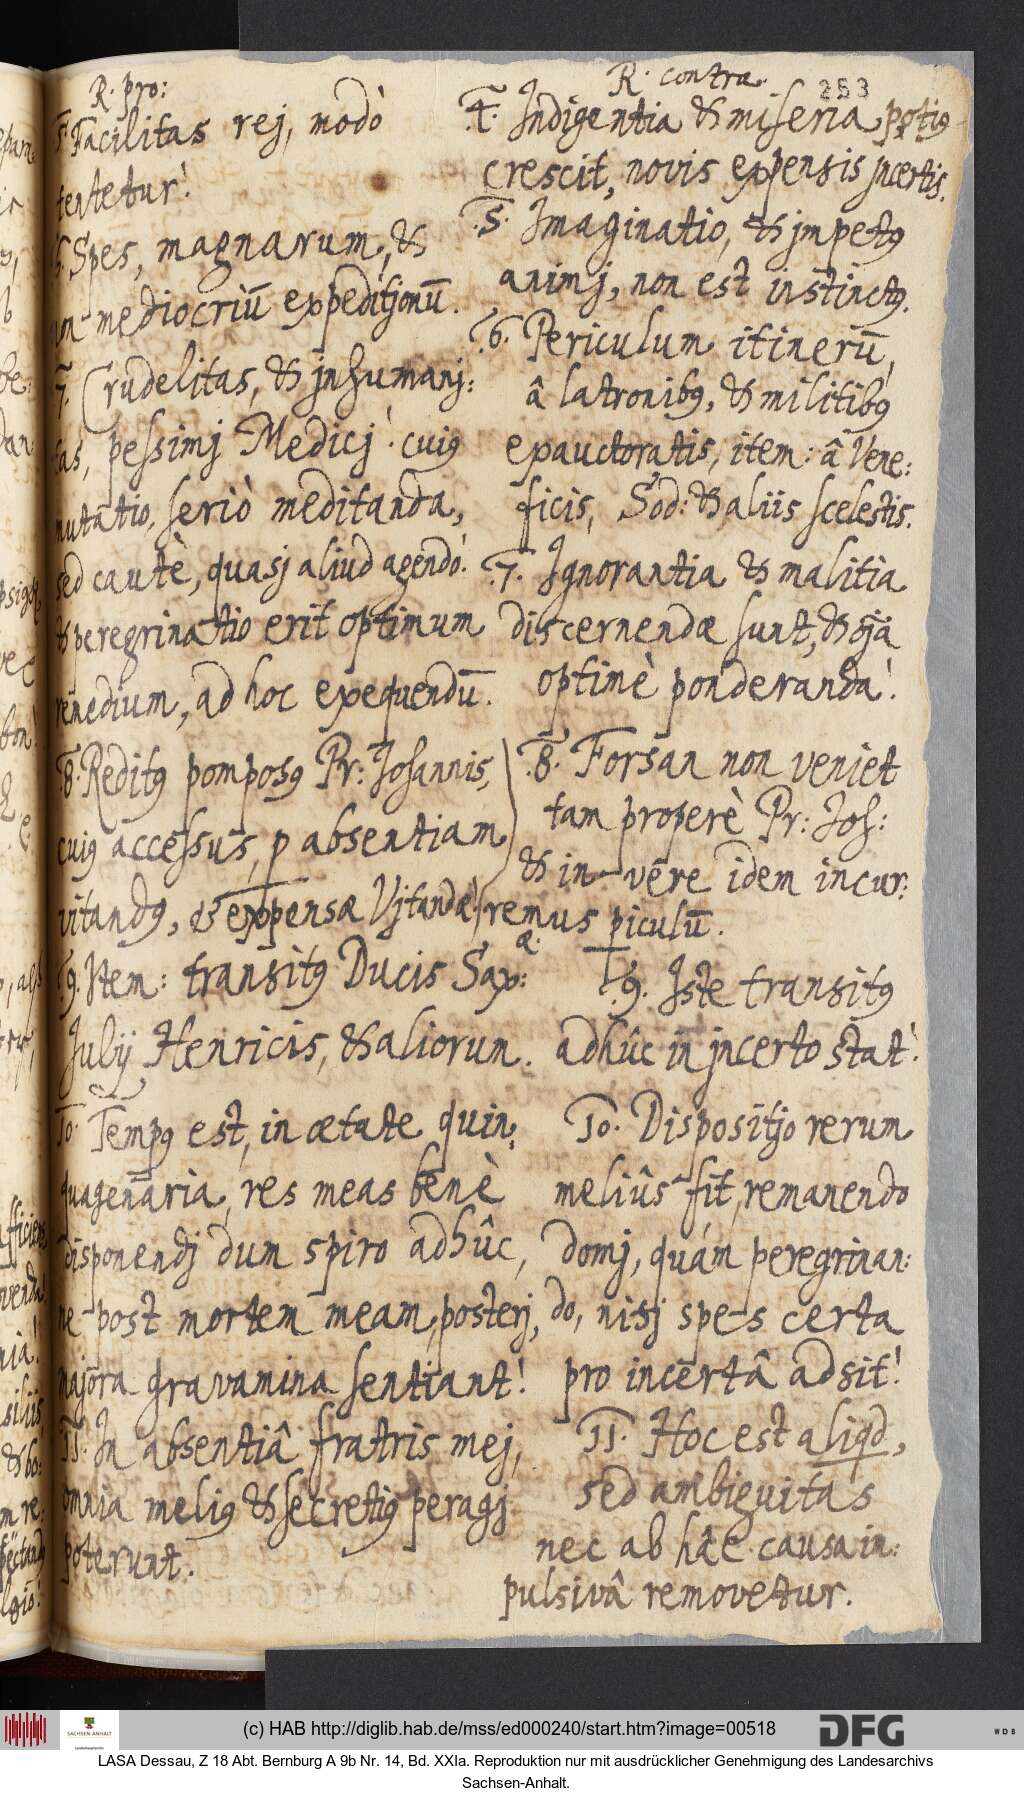 R. pro:
5. Facilitas rej, modò
tentetur!
6. Spes, magnarum, &
non mediocriū expeditjonū.
7. Crudelitas, & jnhumanj:
tas, pessimj Medicj! cuig
mutatio, seriò meditanda,
sed cautè, quasj aliud agendo!
& peregrinatio erit optimum
remedium, ad hoc exequendū.
8. Reditg pomposg Pr: Johannis,
cuig accessus, p absentiam
vitandg, & expensæ Vjtandæ!
9. Item: transitg Ducis Sax:
Julij Henricis, & aliorum.
10. Tempg est, in ætate quin,
quagenaria, res meas benè
disponendj dum spiro adhûc,
ne post mortem meam, posterj,
majora gravamina sentiant!
11. In absentiâ fratris mej,
omnia melig & secretig peragj
poterunt.
R. contra.
253
4. Indigentia & miseria potig
crescit, novis expensis jncertis.
5. Imaginatio, & jmpetg
animj, non est instinctg.
6. Periculum itinerū,
â latronibg, & militibg
exauctoratis, item: â Vene:
ficis, Sod: & aliis scelestis.
7. Ignorantia & malitia
discernendæ sunt, & oĩa
optimè ponderanda!
8. Forsan non veniet
tam properè Pr: Joh:
& in vere idem incur:
remus piculū.
9. Iste transitg
adhûc in jncerto stat!
10. Dispositjo rerum
meliûs fit, remanendo
domj, quám peregrinan:
do, nisj spes certa
pro incertâ adsit!
11. Hoc est aliqd,
sed ambiguitas
nec ab hâc causa in:
pulsivâ removetur.
(c) HAB http://diglib.hab.de/mss/ed000240/start.htm?image=00518
SACHSEN-ANHALT
DFG
WDB
LASA Dessau, Z 18 Abt. Bernburg A 9b Nr. 14, Bd. XXIa. Reproduktion nur mit ausdrücklicher Genehmigung des Landesarchivs
Sachsen-Anhalt.